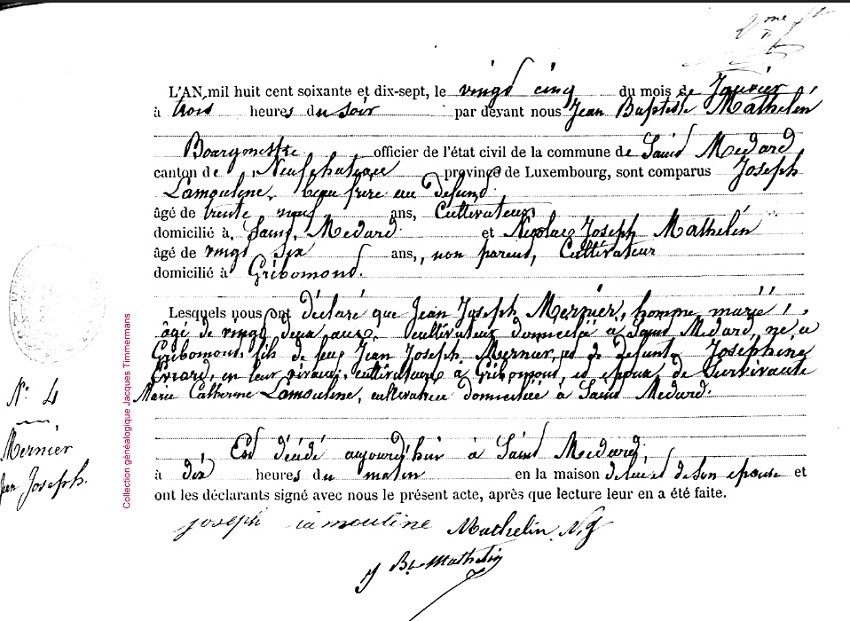 L'AN mil huit cent soixante et dix-sept, le vingt cinq du mois de Janvier
à trois heures du soir par devant nous Jean Baptiste Mathelin
Bourgmestre officier de l'état civil de la commune de Saint Medard
canton de Neufchateau province de Luxembourg, sont comparus Joseph
Lamouline, beau frere au defunt
âgé de trente neuf ans, Cultivateur
domicilié à Saint Medard et Nicolas Joseph Mathelin
âgé de vingt six ans, non parent, Cultivateur
domicilié à Gribomont.
Lesquels nous ont déclaré que Jean Joseph Mernier, homme marié,
âgé de vingt deux ans, cultivateur domicilié à Saint Medard, né a
Gribomont, fils de feu Jean Joseph Mernier, et de defunte Josephine
Evrard, en leur vivant, cultivateurs à Gribomont, et epoux de Survivante
Marie Catherine Lamouline, cultivatrice domiciliée à Saint Medard.
Est décédé aujourd'hui à Saint Medard
à dix heures du matin en la maison de lui et de son epouse et
ont les déclarants signé avec nous le présent acte, après que lecture leur en a été faite.
joseph lamouline Mathelin N. J
J Bte Mathelin
N° 4
Mernier
Jean Joseph.
Collection généalogique Jacques Timmermans